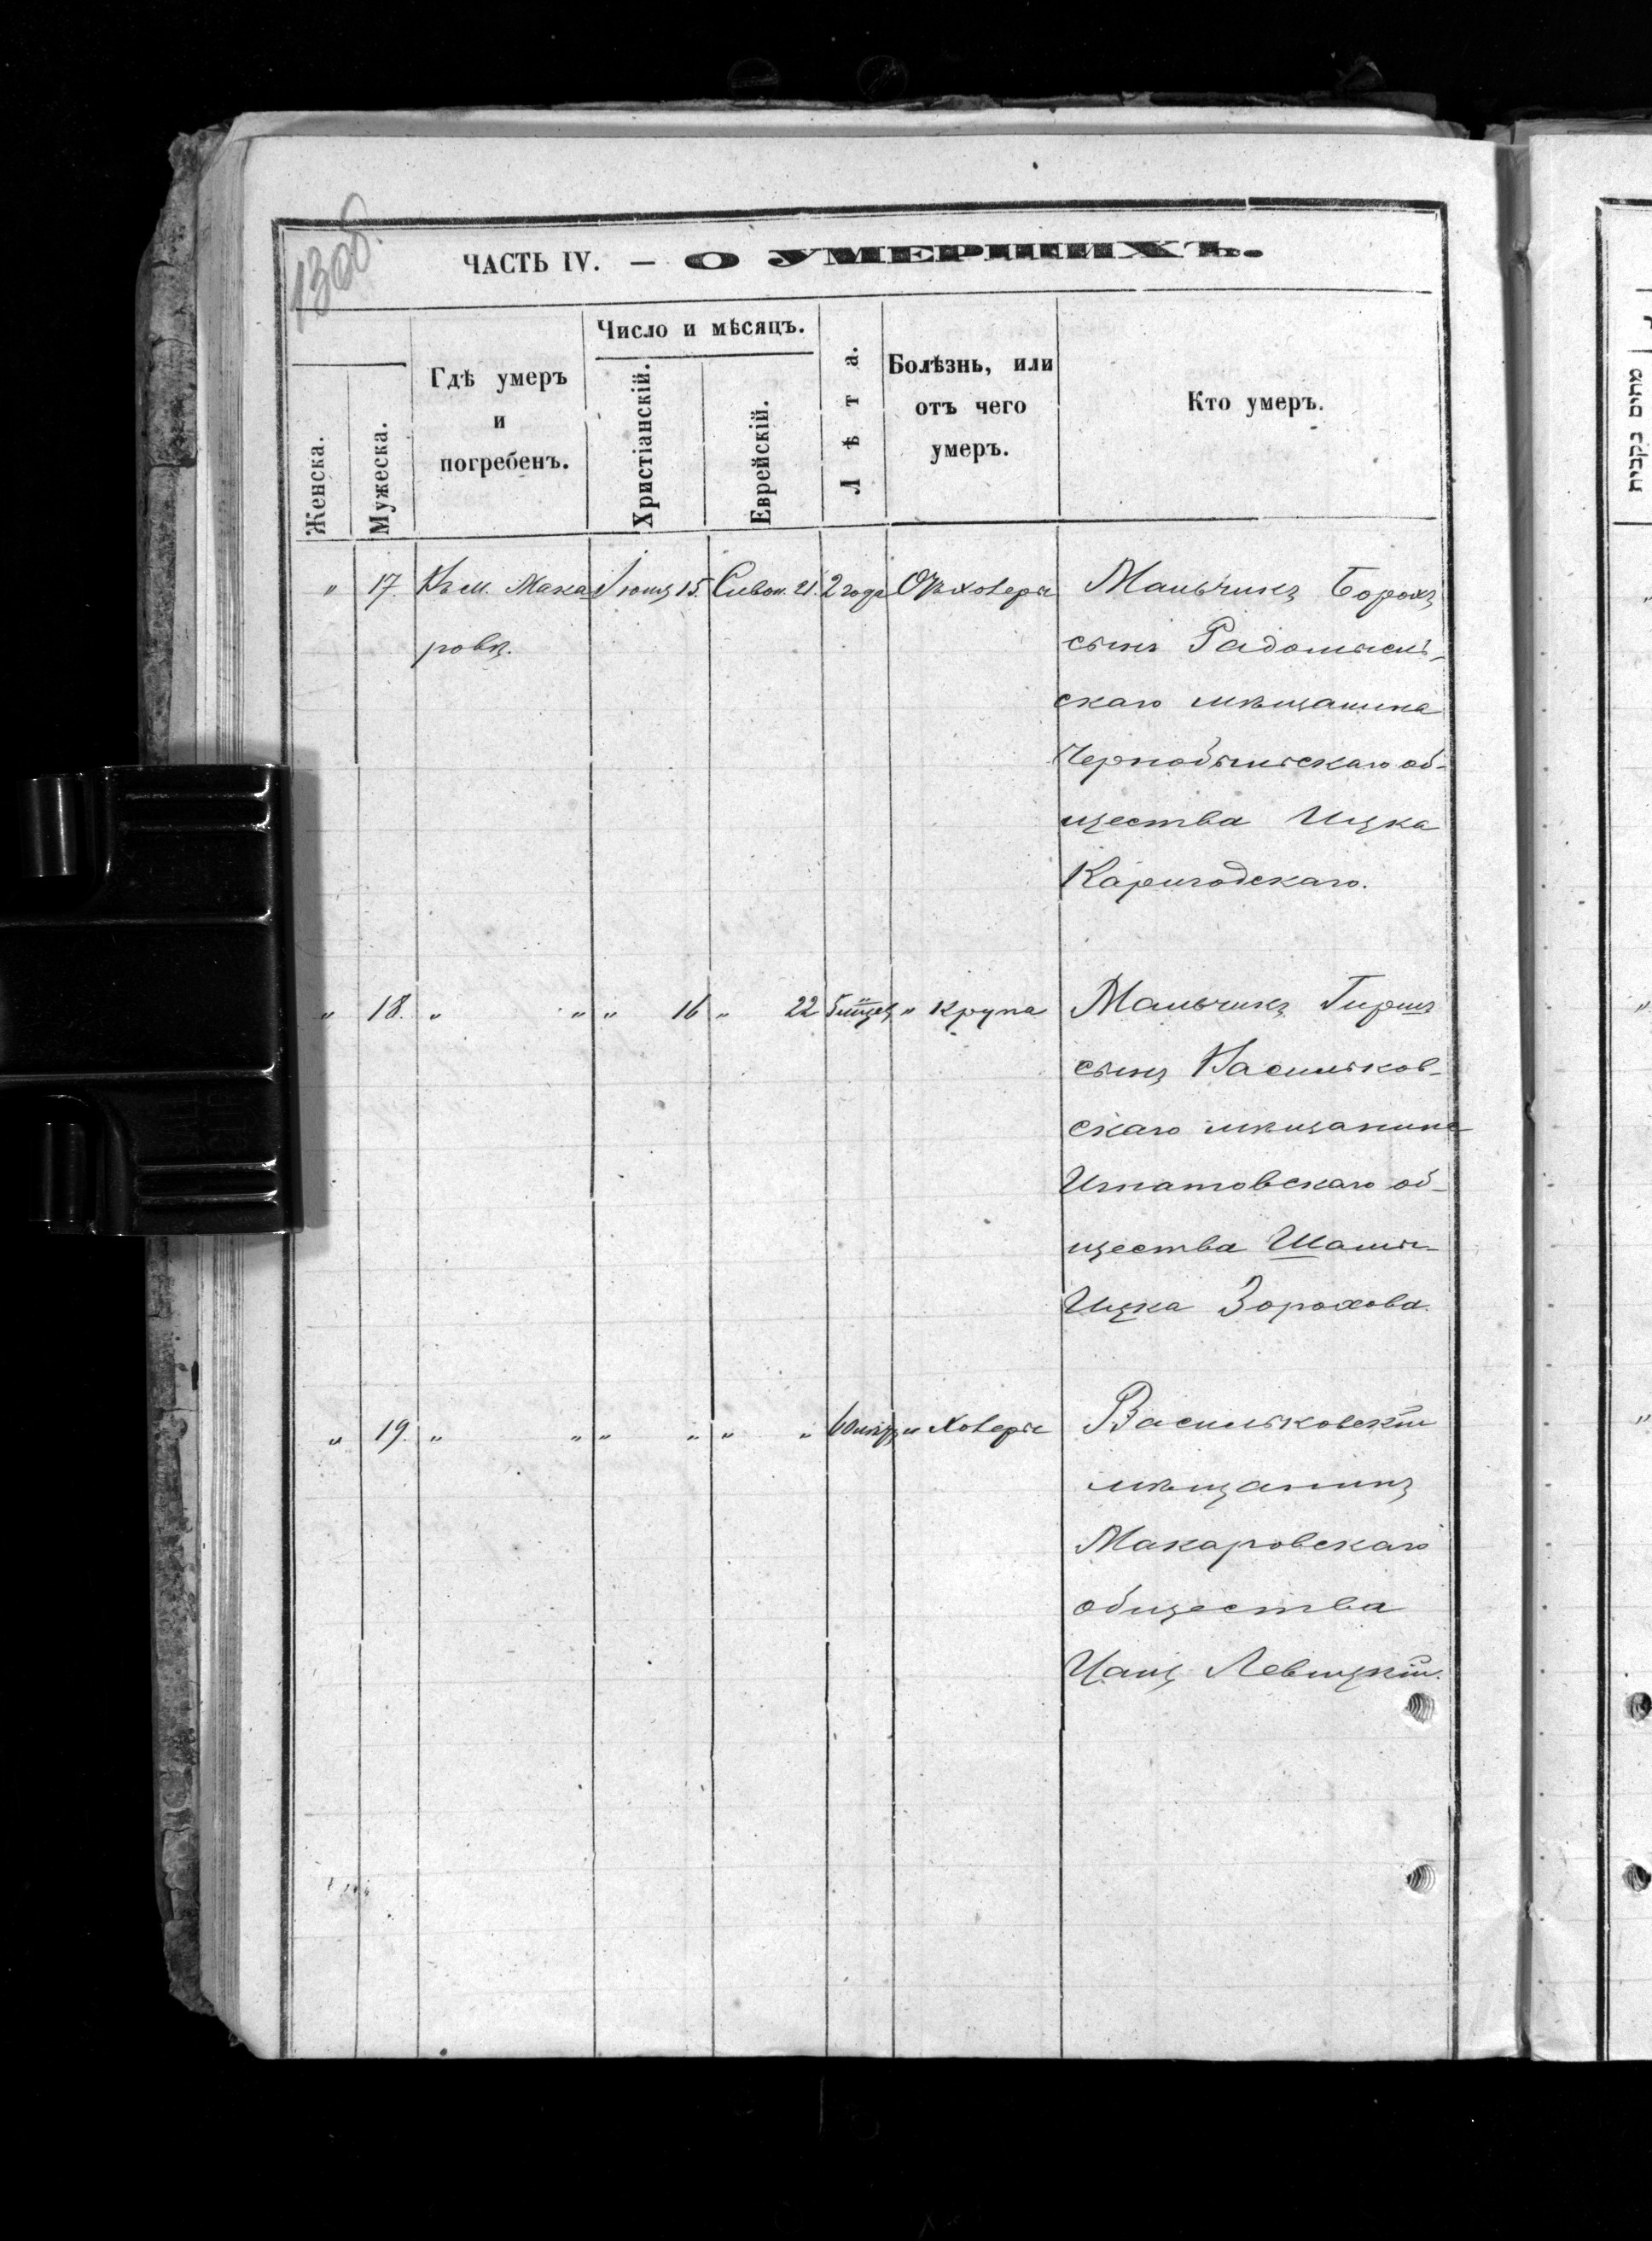 130об.
ЧАСТЬ IV. — О УМЕРШИХЪ.
Женска.
Мужеска.
Гдѣ умеръ
и
погребенъ.
Число и мѣсяцъ.
Христіанскій.
Еврейскій.
Лѣта.
Болѣзнь, или
отъ чего
умеръ.
Кто умеръ.
" 17. Въ м. Мака- Іюня 15. Сивон. 21. 2 года Отъ холеры Мальчикъ Борохъ
ровѣ. сынъ Радомысль-
скаго мѣщанина
Чернобыльскаго об-
щества Ицка
Каригодскаго.
" 18. " " " 16 " 22 5 мѣсяц. " Крупа Мальчикъ Гиршъ
сынъ Васильков-
скаго мѣщанина
Игнатовскаго об-
щества
Ицка Зорохова.
" 19. " " " " " " 60 " Холеры Васильковскій
мѣщанинъ
Макаровскаго
общества
Левицкій.
מתים בקבית